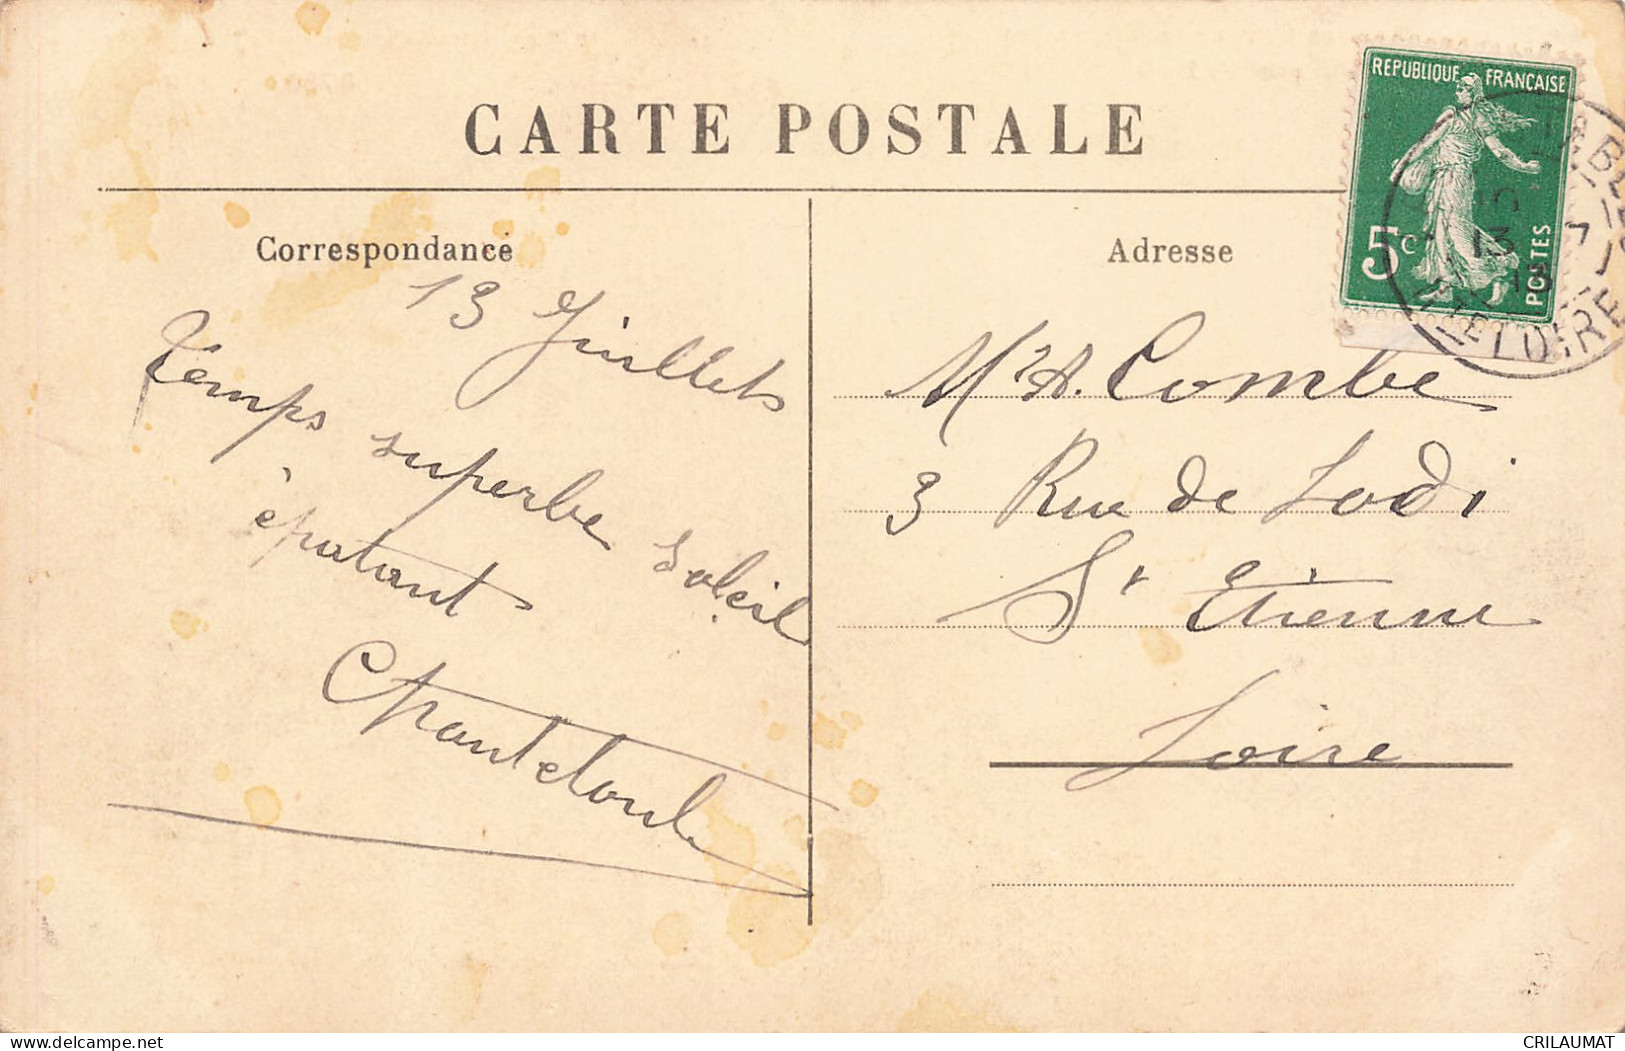 CARTE POSTALE
Correspondance
13 Juillets
Temps superbe soleil
épatant
Adresse
REPUBLIQUE FRANÇAISE
5c
POSTES
13 7
13
LOIRE
Mr A. Combe
3 Rue de Lodi
St Etienne
Loire
delcampe.net
CRILAUMAT